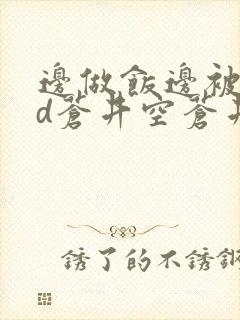 邊做飯邊被
d蒼井空蒼井
銹了的不銹鋼